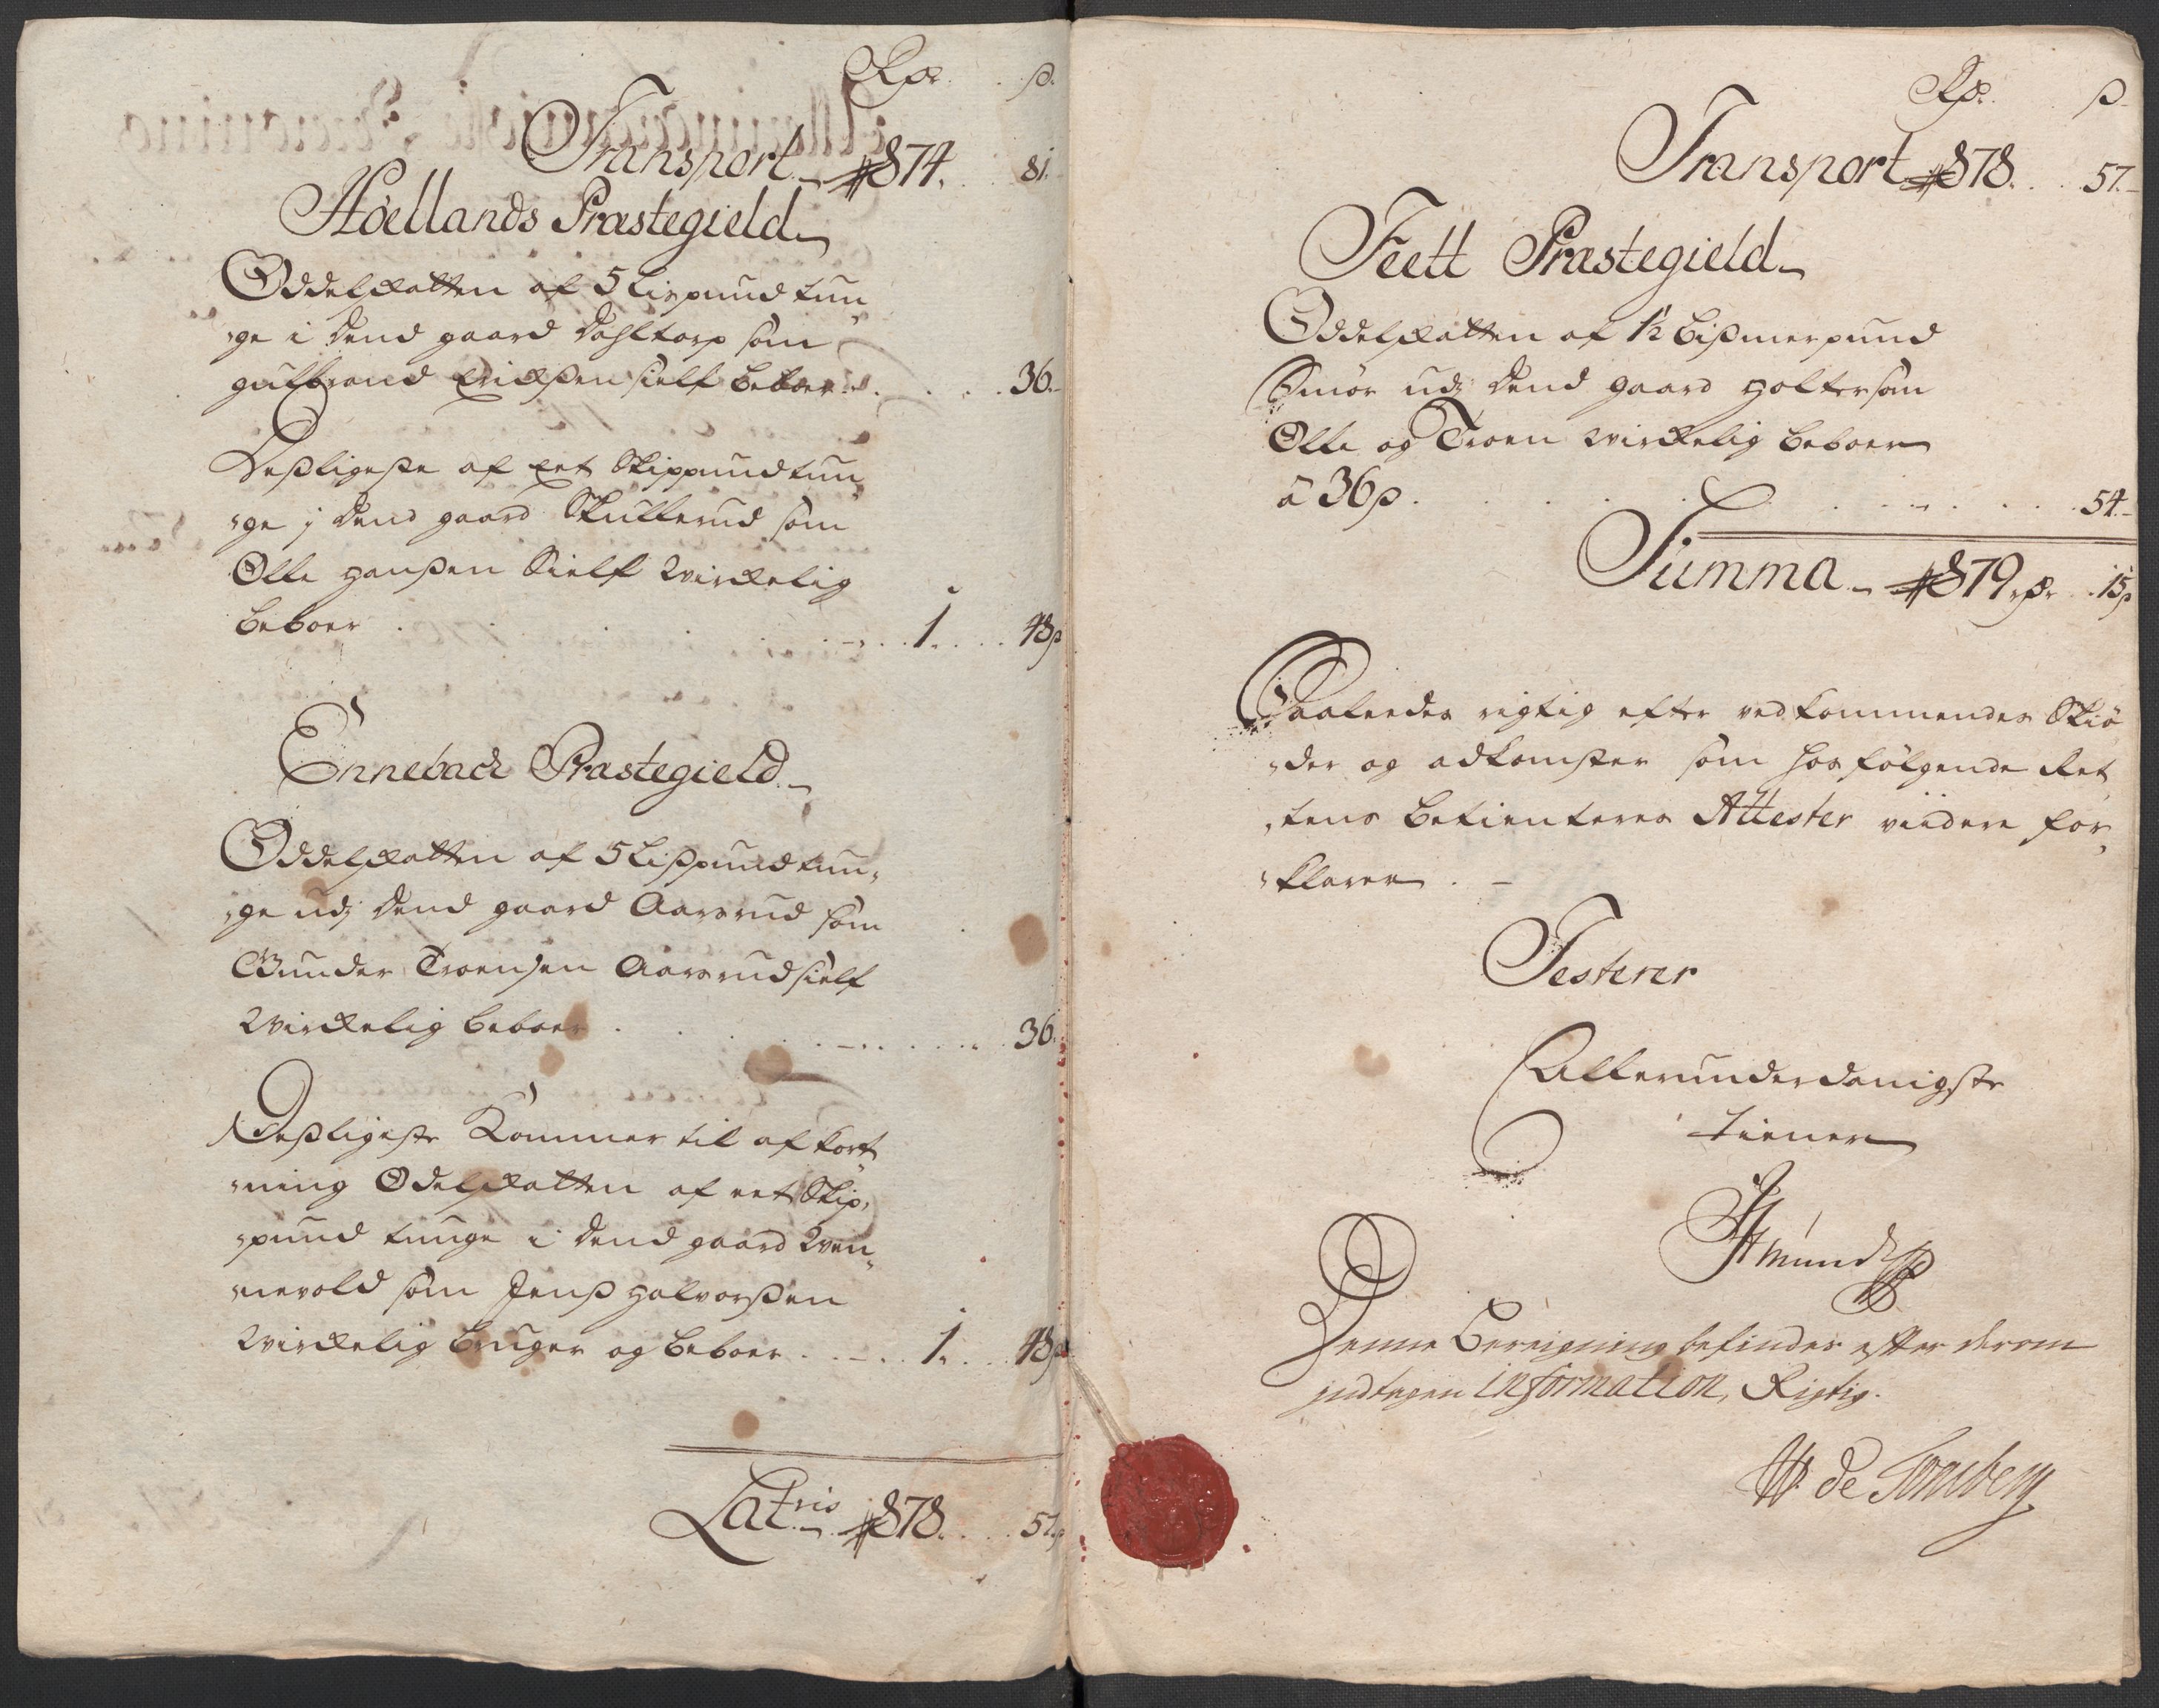 Rdr. ß.
Transport 874. 81.
Höellands Præstegield
Oddelskatten af 5 Lispund tun
ge i dend gaard Dahltorp som
gulbrand Erichßen sielf beboer 36.
Deßligeste af eet Skippund tun
ge j dend gaard Skullerud som
Olle Hanßen Sielf Wirckelig
beboer 1. 48ß
Ennebach Præstegield
Oddelskatten af 5 Lißpund tun
ge udj dend gaard Aarsrud som
Gunder Troensen Aarsrud sielf
Wirckelig beboer 36.
Deßligeste Kommer til afkort
ning Odelskatten af eet Skip
pund tunge i dend gaard Wen
nevold som Jenß Halvorßen
Wirckelig bruger og beboer 1. 48ß
Lat.ris 878. 57.
Rdr. ß
Transport 878. 57.
Feett Præstegield
Oddelskatten af 1½ Bißmerpund
Smör udj dend gaard Holter som
Olle og Troen wirckelig beboer
a 36ß 54.
Summa 879 rdr 15ß
Saaleedes rigtig efter vedkommendes Skiö
der og adkomster som hosfölgende Ret
tens betienteres Attester viidere for
klarer.
Testerer
Allerunderdanigste
tiener
Denne Bereigning befindes efter derom
indtagen information, Rigtig.
W. de Tonsberg